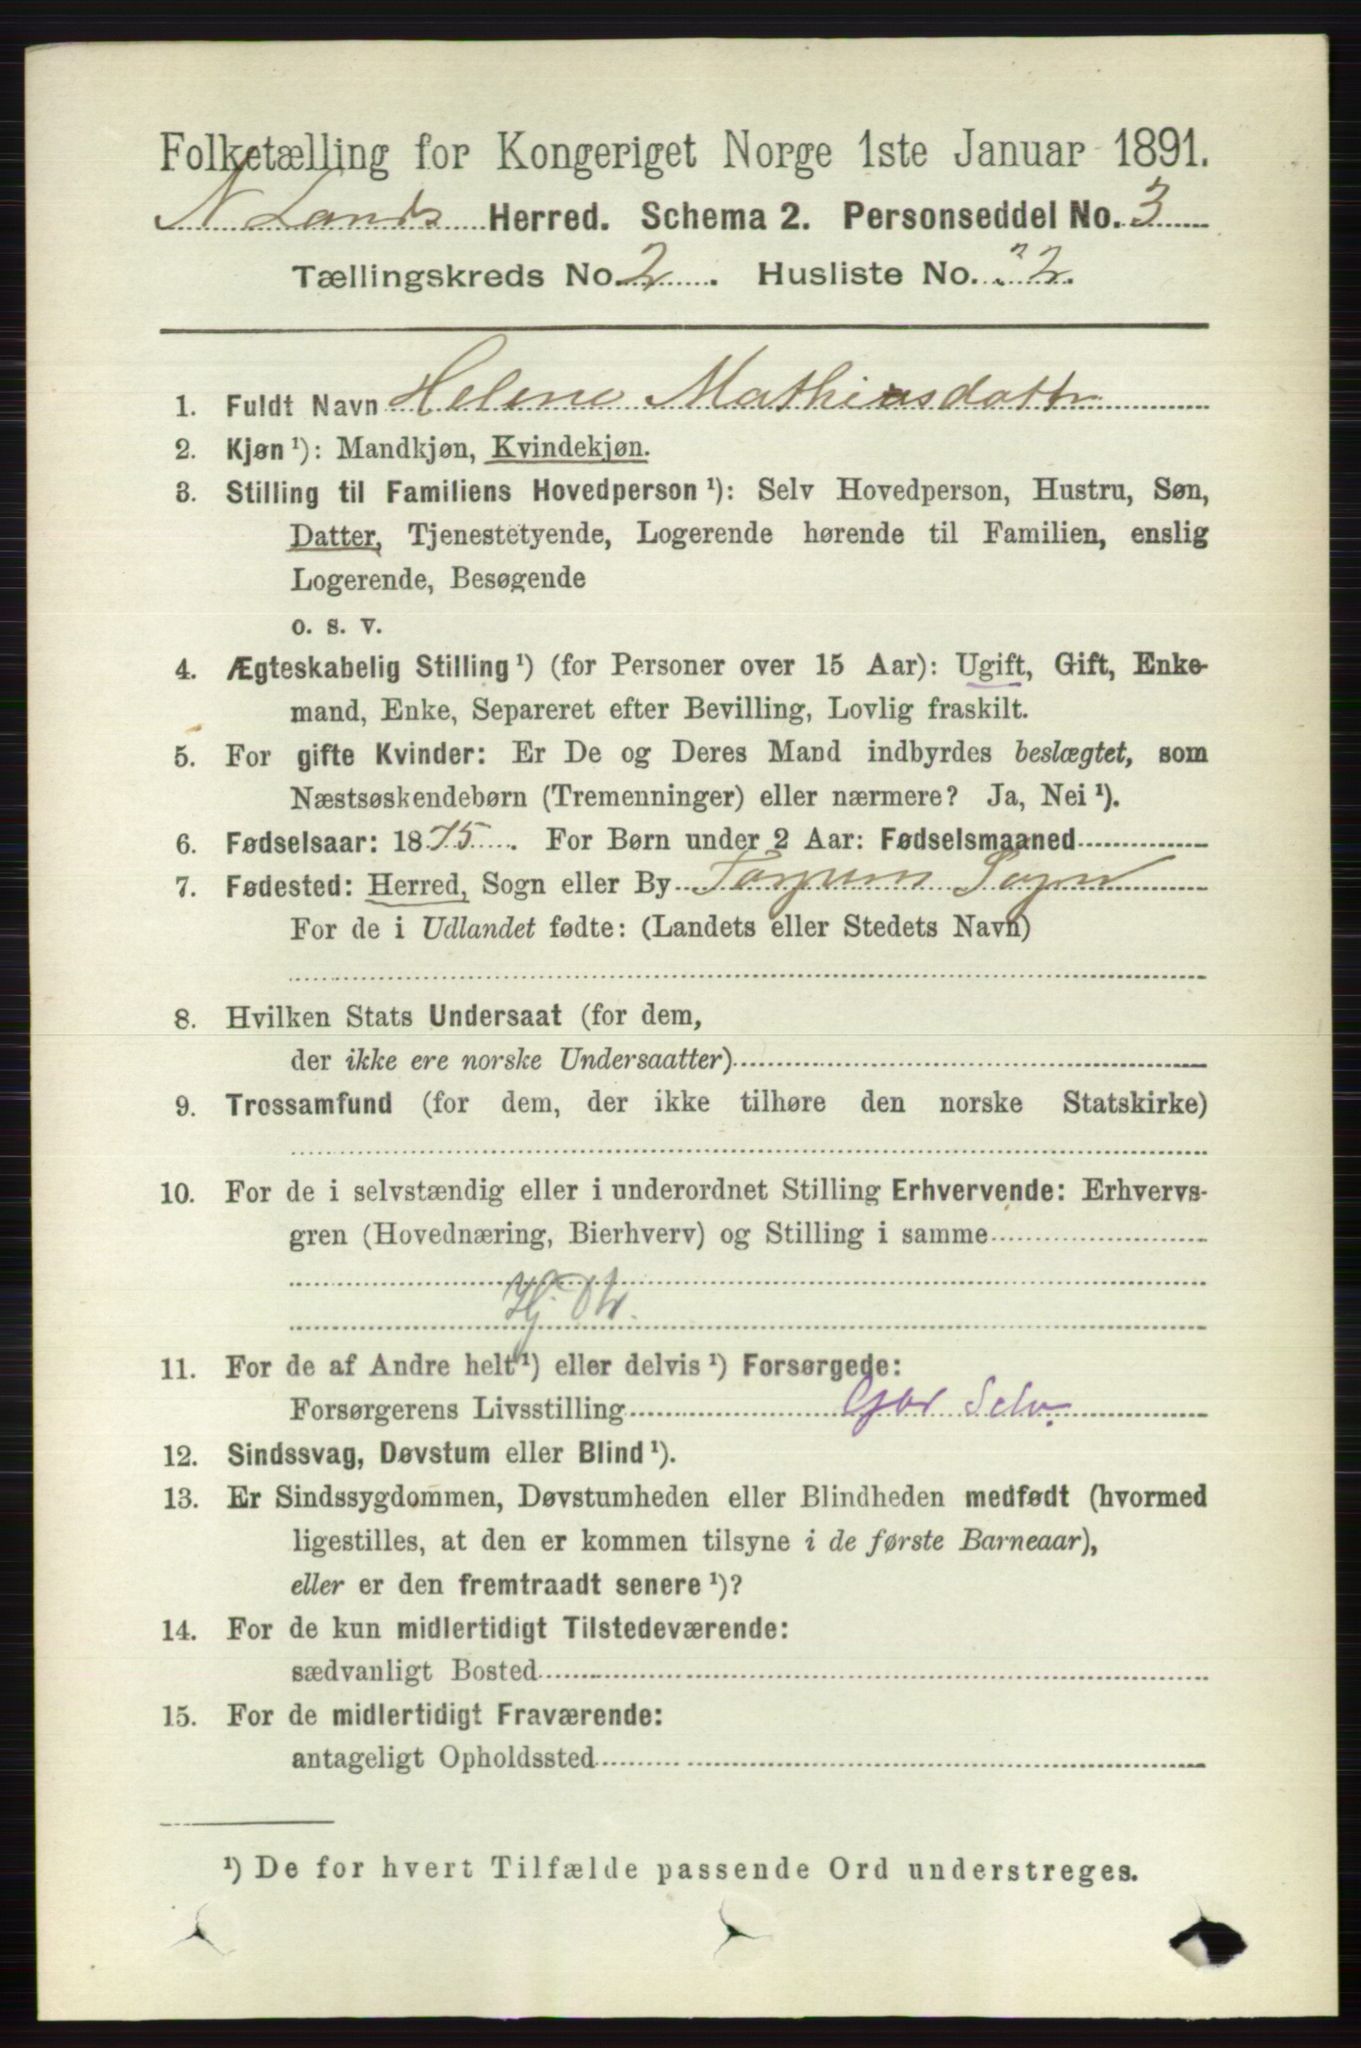 Folketælling for Kongeriget Norge 1ste Januar 1891.
N Lands Herred. Schema 2. Personseddel No. 3
Tællingskreds No. 2. Husliste No. 22.
1. Fuldt Navn Helene Mathiasdattr
2. Kjøn ¹): Mandkjøn, Kvindekjøn.
3. Stilling til Familiens Hovedperson ¹): Selv Hovedperson, Hustru, Søn,
Datter, Tjenestetyende, Logerende hørende til Familien, enslig
Logerende, Besøgende
o. s. v.
4. Ægteskabelig Stilling ¹) (for Personer over 15 Aar): Ugift, Gift, Enke-
mand, Enke, Separeret efter Bevilling, Lovlig fraskilt.
5. For gifte Kvinder: Er De og Deres Mand indbyrdes beslægtet, som
Næstsøskendebørn (Tremenninger) eller nærmere? Ja, Nei ¹).
6. Fødselsaar: 1875. For Børn under 2 Aar: Fødselsmaaned
7. Fødested: Herred, Sogn eller By Sogn
For de i Udlandet fødte: (Landets eller Stedets Navn)
8. Hvilken Stats Undersaat (for dem,
der ikke ere norske Undersaatter)
9. Trossamfund (for dem, der ikke tilhøre den norske Statskirke)
10. For de i selvstændig eller i underordnet Stilling Erhvervende: Erhvervs-
gren (Hovednæring, Bierhverv) og Stilling i samme
Hj. Dtr.
11. For de af Andre helt ¹) eller delvis ¹) Forsørgede:
Forsørgerens Livsstilling Gbr Selv.
12. Sindssvag, Døvstum eller Blind ¹).
13. Er Sindssygdommen, Døvstumheden eller Blindheden medfødt (hvormed
ligestilles, at den er kommen tilsyne i de første Barneaar),
eller er den fremtraadt senere ¹)?
14. For de kun midlertidigt Tilstedeværende:
sædvanligt Bosted
15. For de midlertidigt Fraværende:
antageligt Opholdssted
¹) De for hvert Tilfælde passende Ord understreges.